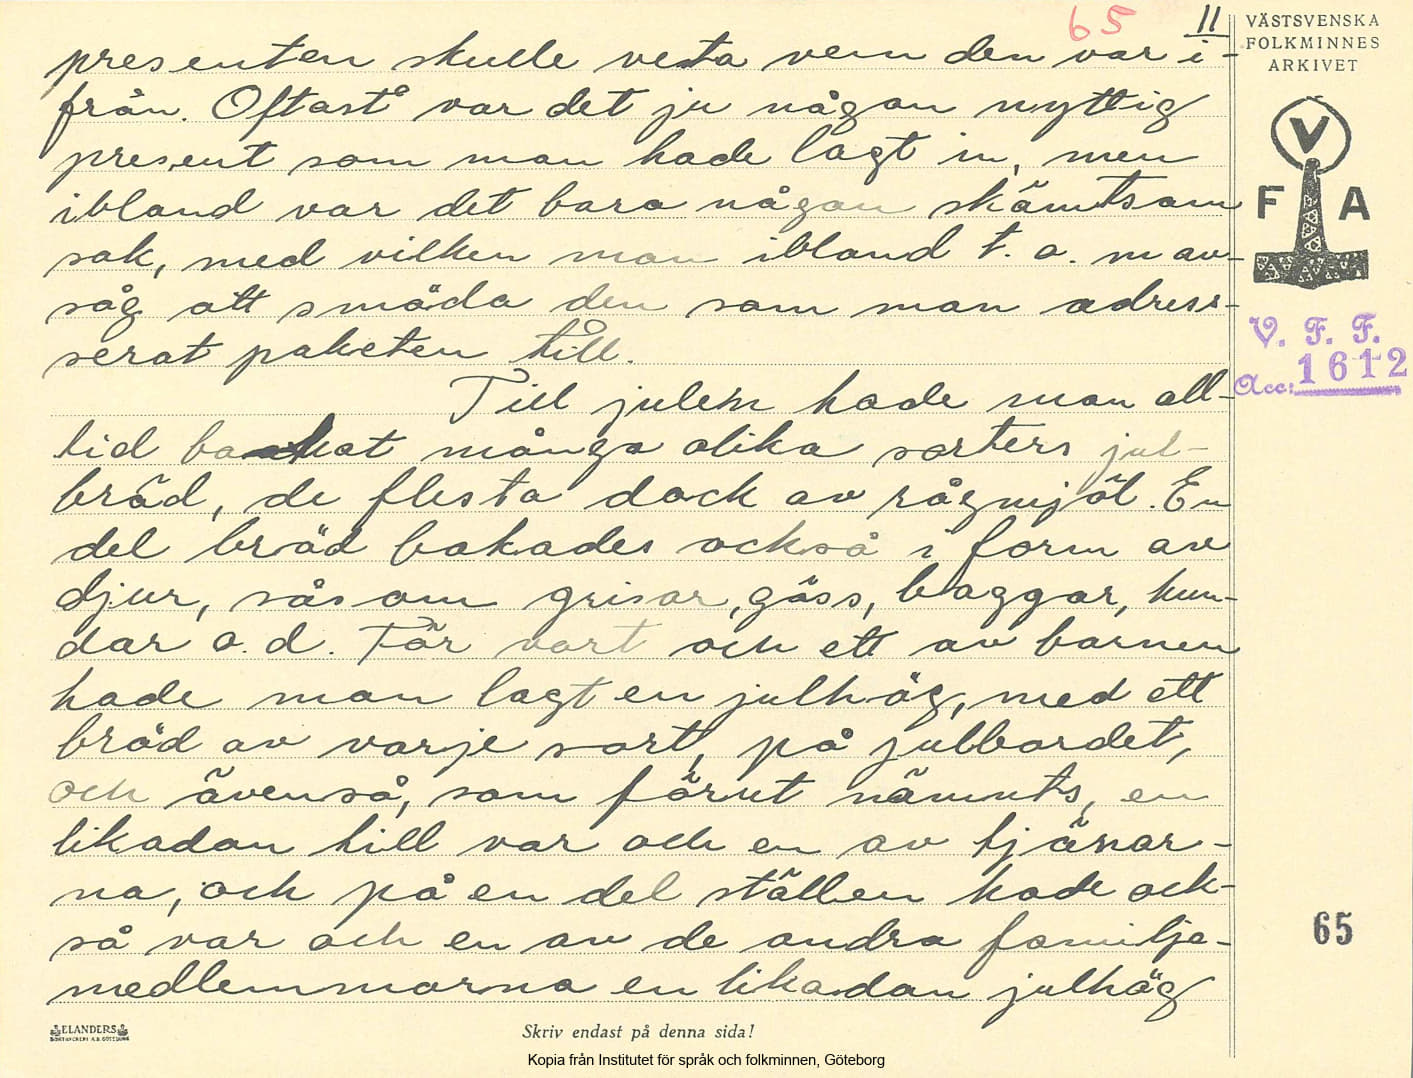 65 11
presenten skulle veta vem den var i-
från. Oftast var det ju någon nyttig
present som man hade lagt in, men
ibland var det bara någon skämtsam
sak, med vilken man ibland t. o. m av-
såg att smäda den som man adres-
serat paketen till.
Till julen hade man all-
tid bakat många olika sorters jul-
bröd, de flesta dock av rågmjöl. En
del bröd bakades också i form av
djur, såsom grisar, gäss, baggar, hun-
dar o. d. För vart och ett av barnen
hade man lagt en julhög, med ett
bröd av varje sort, på julbordet,
och ävenså, som förut nämnts, en
likadan till var och en av tjänar-
na, och på en del ställen hade ock-
så var och en av de andra familje-
medlemmarna en likadan julhög
VÄSTSVENSKA
FOLKMINNES
ARKIVET
V
F A
V. F. F.
Acc: 1612
65
ELANDERS
Skriv endast på denna sida!
Kopia från Institutet för språk och folkminnen, Göteborg